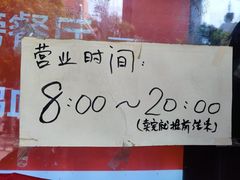 营业时间:
8:00～20:00
(卖完就提前结束)